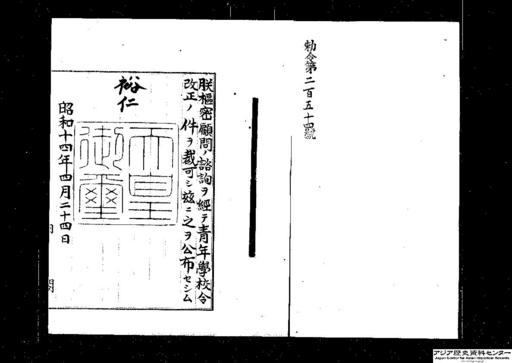 勅令第二百五十四號
朕樞密顧問ノ諮詢ヲ經テ青年學校令
改正ノ件ヲ裁可シ茲ニ之ヲ公布セシム
裕仁
天皇御璽
昭和十四年四月二十四日
アジア歴史資料センター
Japan Center for Asian Historical Records